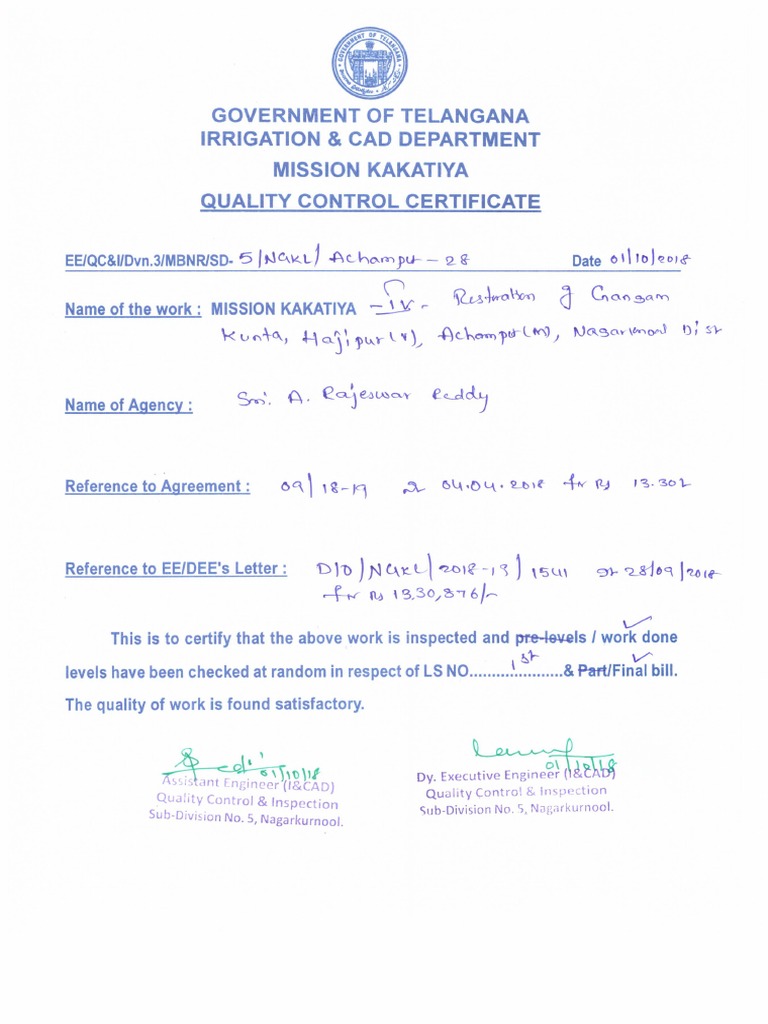 GOVERNMENT OF TELANGANA
GOVERNMENT OF TELANGANA
IRRIGATION & CAD DEPARTMENT
MISSION KAKATIYA
QUALITY CONTROL CERTIFICATE
EE/QC&I/Dvn.3/MBNR/SD- 5/NGKL/ Achampet - 28 Date 01/10/2018
Name of the work : MISSION KAKATIYA - IV - Restoration of Gangam
Kunta, Hajipur(V), Achampet(M), Nagarkurnool Dist
Name of Agency : Sri. A. Rajeswar Reddy
Reference to Agreement : 09/ 18-19 Dt 04.04.2018 for Rs 13.30L
Reference to EE/DEE's Letter : D/D/NGKL/2018-19/1541 Dt 28/09/2018
for Rs 13,30,876/-
This is to certify that the above work is inspected and pre-levels / work done
levels have been checked at random in respect of LS NO.......1st.......& Part/Final bill.
The quality of work is found satisfactory.
01/10/18
Assistant Engineer (I&CAD)
Quality Control & Inspection
Sub-Division No. 5, Nagarkurnool.
01/10/18
Dy. Executive Engineer (I&CAD)
Quality Control & Inspection
Sub-Division No. 5, Nagarkurnool.